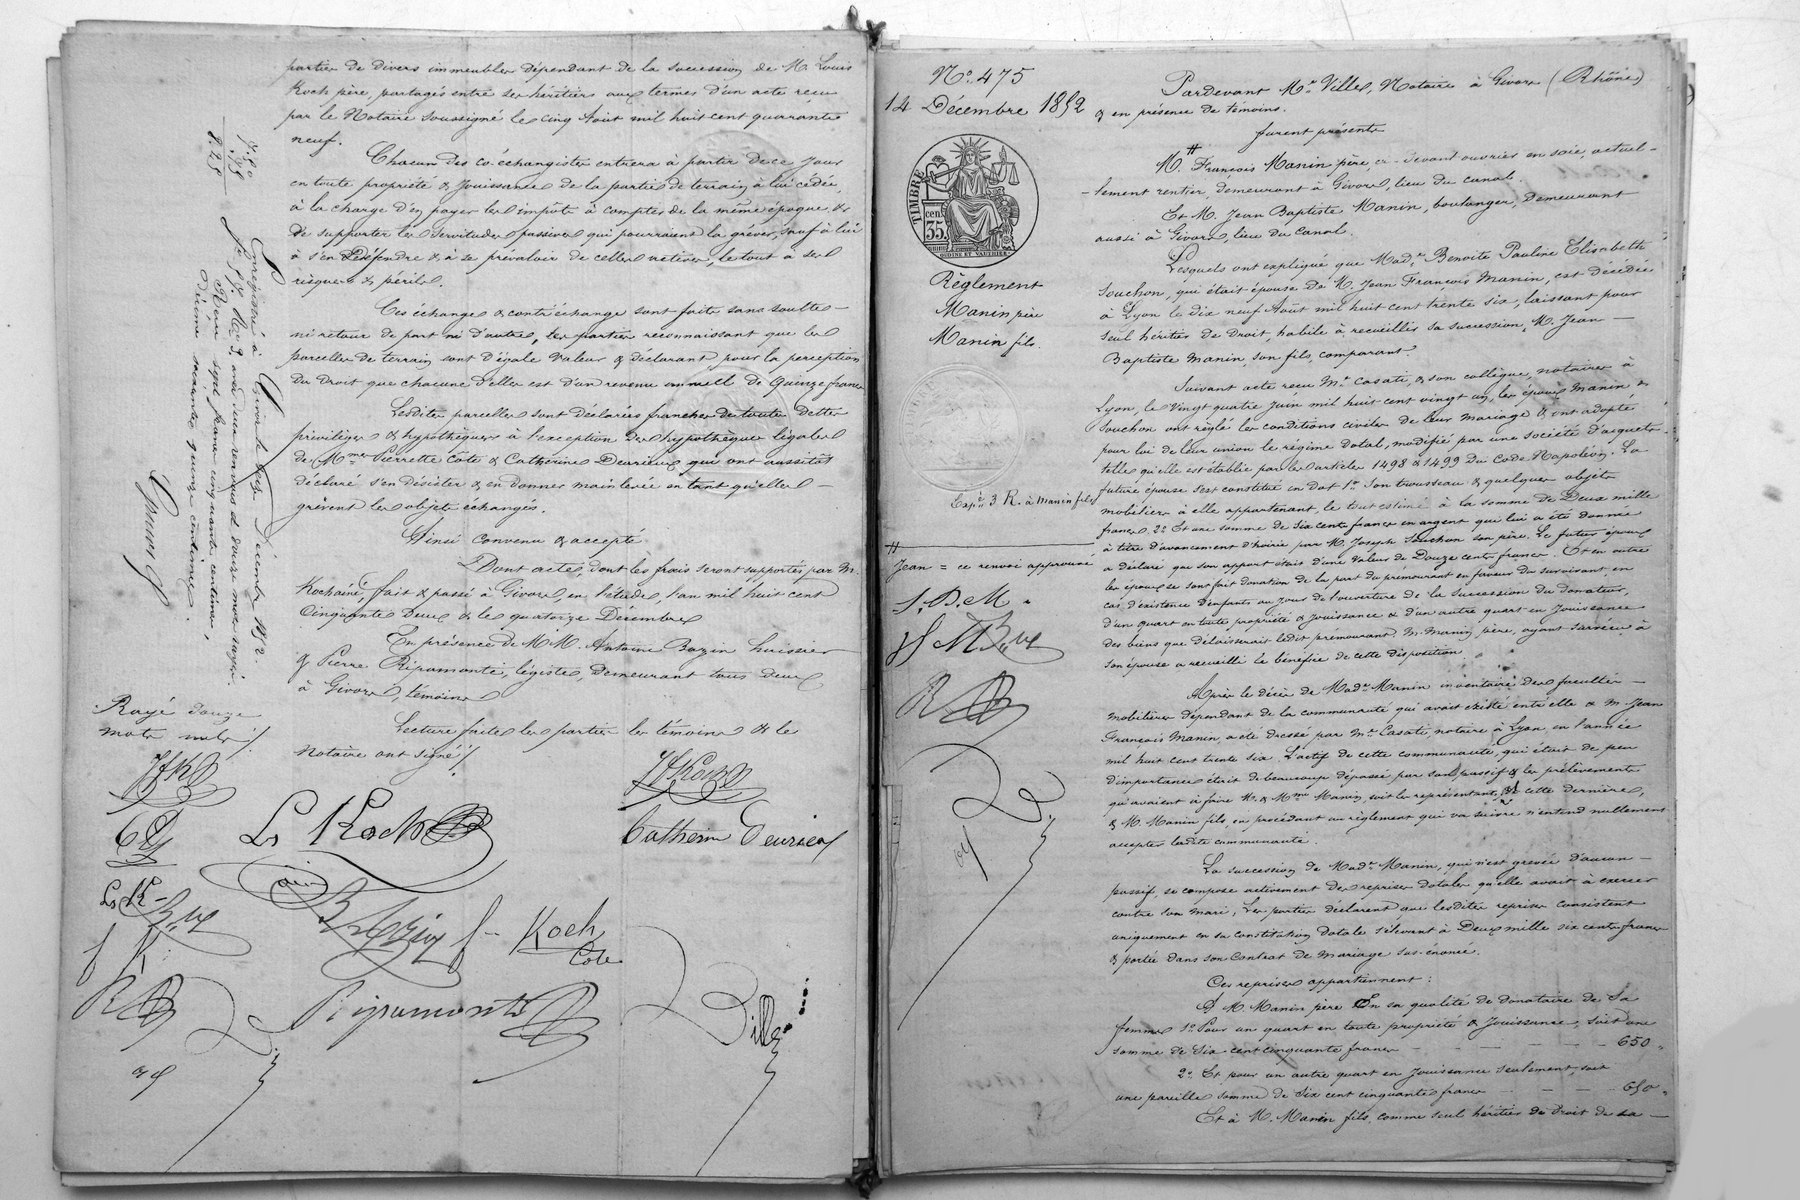 partie de divers immeubles dépendant de la succession de M. Louis
Koch père, partagés entre ses héritiers aux termes d'un acte reçu
par le Notaire soussigné le cinq Août mil huit cent quarante
neuf.
Chacun des co-échangistes entrera à partir de ce jour
en toute propriété & jouissance de la partie de terrain à lui cédée,
à la charge d'en payer les impôts à compter de la même époque, &
de supporter les servitudes passives qui pourraient la gréver, sauf à lui
à s'en défendre & à se prévaloir de celles actives, le tout à ses
risques & périls.
Ces échange & contr'échange sont faits sans soulte
ni retour de part ni d'autre, les parties reconnaissant que les
parcelles de terrain sont d'égale valeur & déclarant pour la perception
du droit que chacune d'elles est d'un revenu annuel de quinze francs
Lesdites parcelles sont déclarées franches de toutes dettes
privilèges & hypothèques à l'exception des hypothèques légales
de Mmes Pierrette Côte & Catherine Devrieux qui ont aussitôt
déclaré s'en désister & en donner mainlevée en tant qu'elles
grèvent les objets échangés.
Ainsi convenu & accepté
Dont acte, dont les frais seront supportés par M.
Koch aîné, fait & passé à Givors, en l'étude, l'an mil huit cent
cinquante deux & le quatorze Décembre
En présence de M.M. Antoine Bazin huissier
& Pierre Ripamonti, légiste, demeurant tous deux
à Givors, témoins
Lecture faite les parties les témoins & le
Notaire ont signé /.
7.50
.75
8.25
Enregistré à Givors le Décembre 1852.
Reçu sept francs cinquante centimes,
Décime soixante quinze centimes.
Rayé douze
mots nuls /.
L. Koch
aîné
Catherine Devrieux
L. K
Bazin
f. Koch
Côte
Ripamonti
Ville
N°. 475
14 Décembre 1852
TIMBRE
35 cen.
OUDINE ET VAUTHIER
Règlement
Manin père
Manin fils.
Expé. 3 R. à Manin fils
Jean = ce renvoi approuvé
J. B. M.
J f M
Pardevant Me. Ville, Notaire à Givors (Rhône)
& en présence de témoins.
furent présents
M. François Manin père, ci-devant ouvrier en soie, actuel-
-lement rentier, demeurant à Givors, lieu du canal.
Et M. Jean Baptiste Manin, boulanger, demeurant
aussi à Givors, lieu du Canal.
Lesquels ont expliqué que Made. Benoite Pauline Elisabeth
Souchon, qui était épouse de M. Jean François Manin, est décédée
à Lyon le dix neuf Août mil huit cent trente six, laissant pour
seul héritier de droit, habile à recueillir sa succession, M. Jean
Baptiste Manin, son fils, comparant.
Suivant acte reçu Me. Casati, & son collègue, notaires à
Lyon, le vingt quatre juin mil huit cent vingt un, les époux Manin &
Souchon ont réglé les conditions civiles de leur mariage & ont adopté
pour loi de leur union le régime dotal, modifié par une société d'acquets
telle qu'elle est établie par les articles 1498 & 1499 du Code Napoléon. La
future épouse s'est constitué en dot 1°. Son trousseau & quelques objets
mobiliers à elle appartenant, le tout estimé à la somme de Deux mille
francs 2°. Et une somme de six cents francs en argent qui lui a été donnée
à titre d'avancement d'hoirie par M. Joseph Souchon son père. Le futur époux
a déclaré que son apport était d'une valeur de Douze cents francs. Et en outre
les époux se sont fait donation de la part du prémourant en faveur du survivant, en
cas d'existence d'enfants au jour de l'ouverture de la succession du donateur,
d'un quart en toute propriété & jouissance & d'un autre quart en jouissance
des biens que délaisserait ledit prémourant. M. Manin, père, ayant survécu à
son épouse a recueilli le bénéfice de cette disposition
Après le décès de Made. Manin inventaire des facultés
mobilières dépendant de la communauté qui avait existé entr'elle & M. Jean
François Manin, a été dressé par Me. Casati, notaire à Lyon, en l'année
mil huit cent trente six. L'actif de cette communauté, qui était de peu
d'importance était de beaucoup dépassé par son passif & les prélèvements
qu'avaient à faire M. & Mme Manin, soit les représentants de cette dernière,
& M. Manin fils, en procédant au règlement qui va suivre n'entend nullement
accepter ladite communauté.
La succession de Made. Manin, qui n'est grevée d'aucun
passif, se compose activement des reprises dotales qu'elle avait à exercer
contre son mari; Les parties déclarent que lesdites reprises consistent
uniquement en sa constitution dotale s'élevant à Deux mille six cents francs
& portée dans son Contrat de Mariage sus-énoncé.
Ces reprises appartiennent :
A M. Manin père En sa qualité de donataire de sa
femme 1°. Pour un quart en toute propriété & jouissance, soit une
somme de six cent cinquante francs — — — — 650 "
2°. Et pour un autre quart en jouissance seulement, soit
une pareille somme de six cent cinquante francs — — — 650 "
Et à M. Manin fils, comme seul héritier de droit de sa